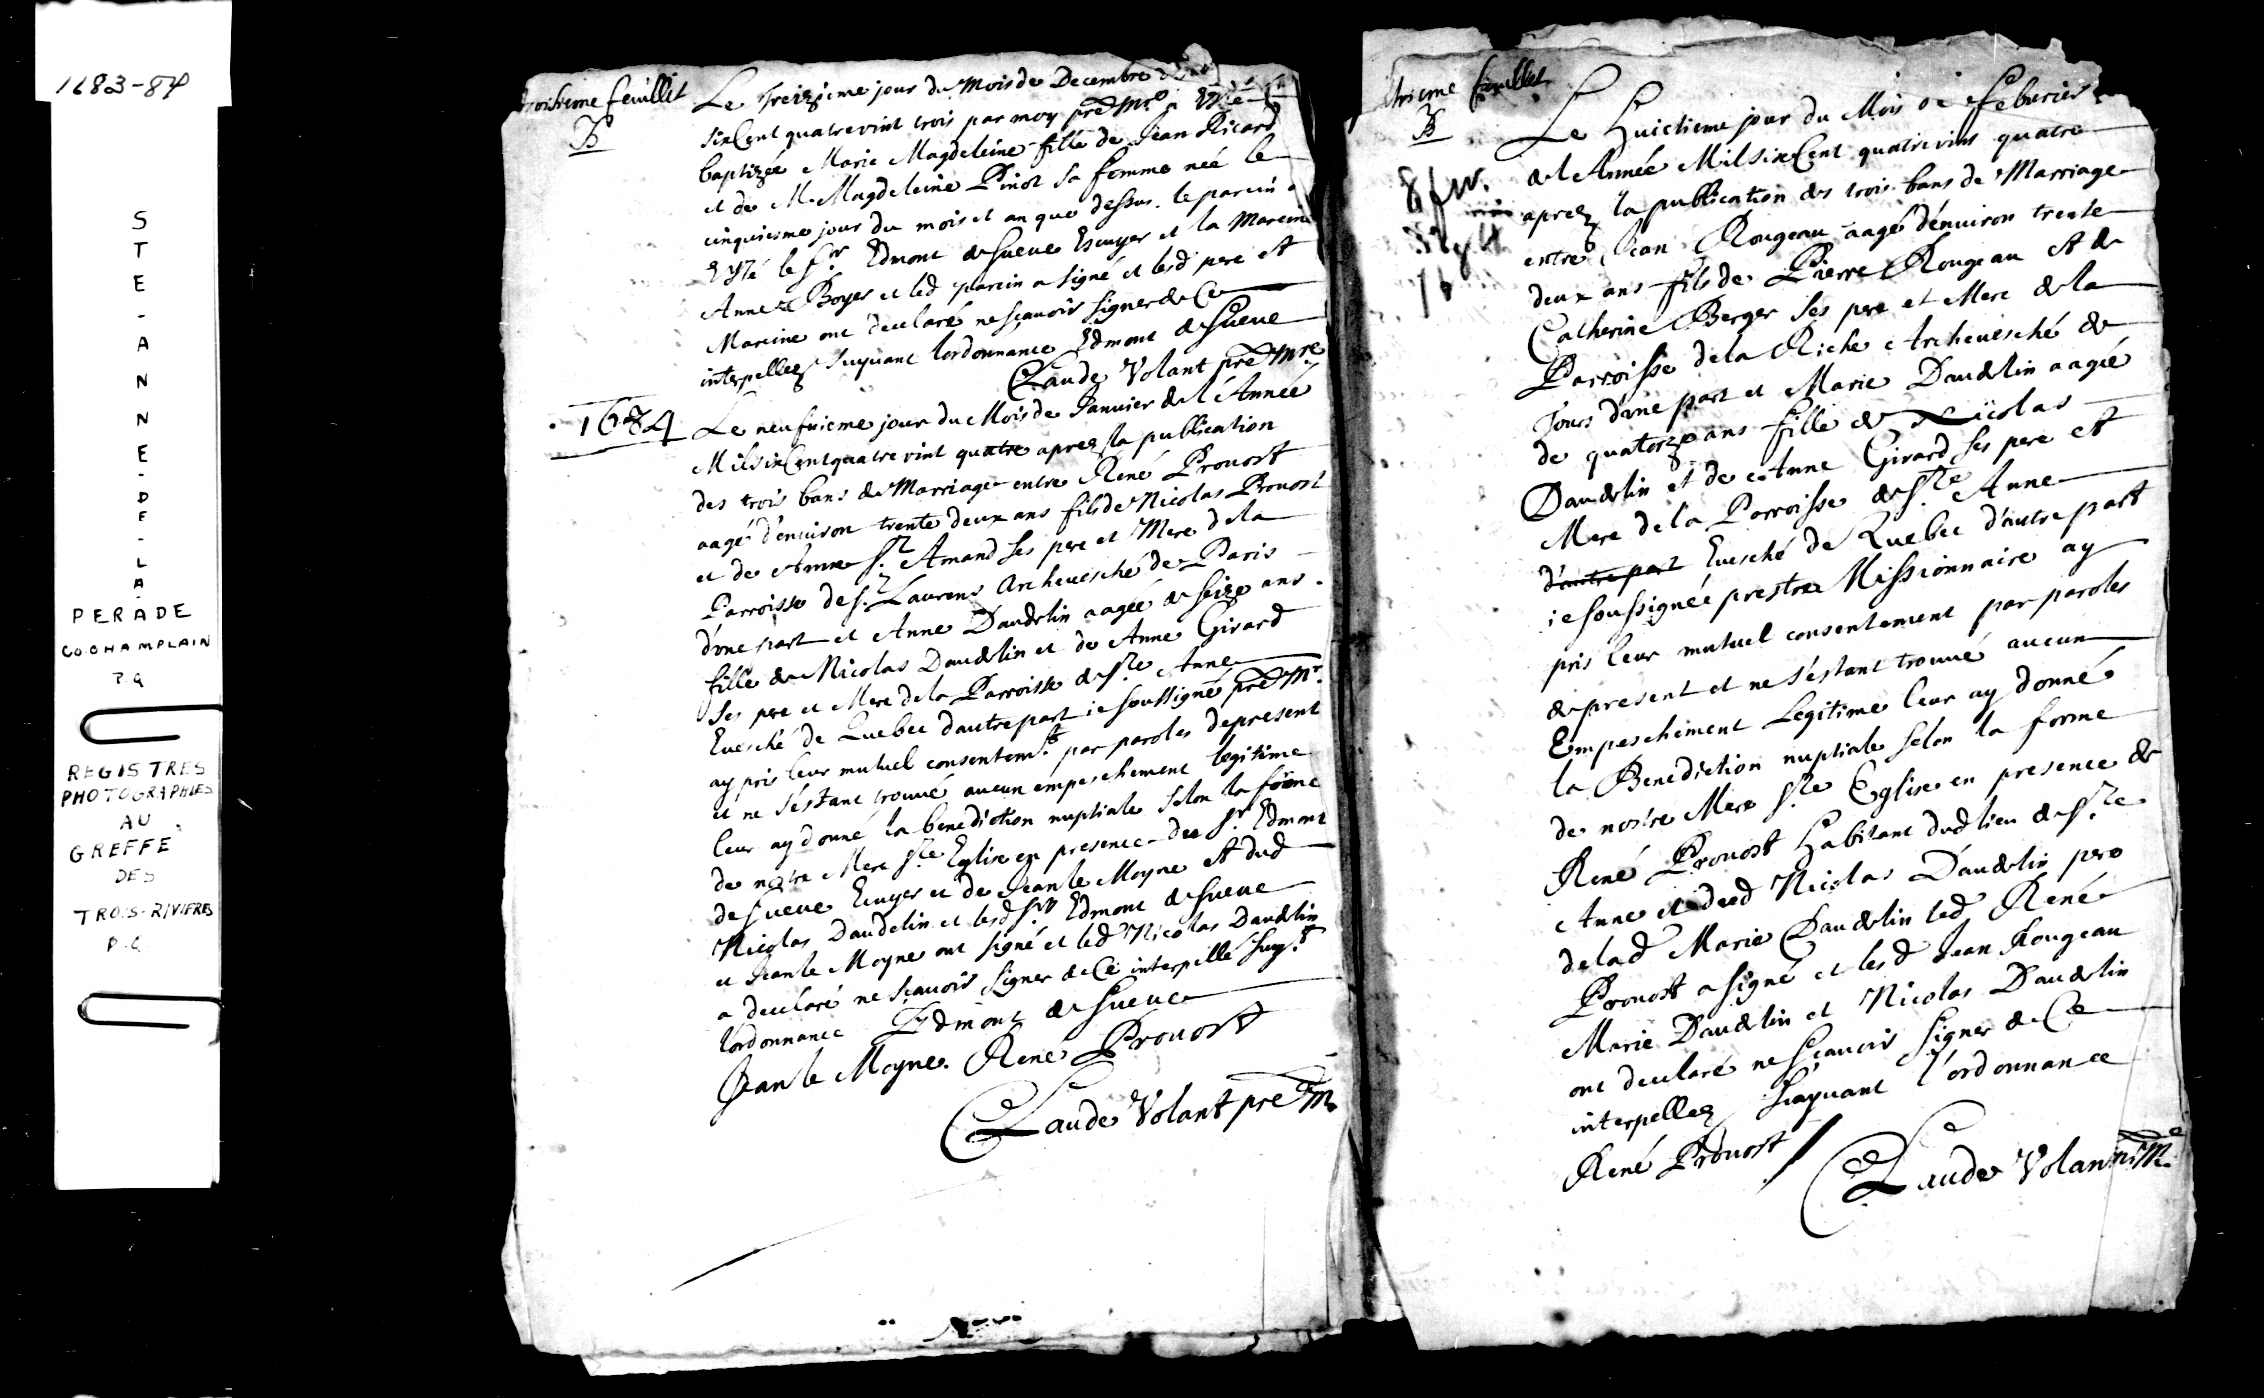 1683-84
STE-ANNE-DE-LA-
PERADE
CO CHAMPLAIN
P Q
REGISTRES
PHOTOGRAPHIES
AU
GREFFE
DES
TROIS-RIVIERES
P.Q
troisieme feuillet
B
Le Treizieme jour du Mois de Decembre
sixCent quatrevint trois par moy pre Mre a Esté
baptizée Marie Magdeleine fille de Jean Ricard
et de M. Magdeleine Pinot sa femme neé le
cinquiesme jour du mois et an que dessus. le parein a
Esté le Sr. Edmont de Sueve Escuyer et la Mareine
Anne Boyer et led parein a signé et lesd pere et
Mareine ont declaré ne sçauoir signer de Ce
interpellez suyuant lordonnance Edmont de Sueue
Claude Volant pre Mre
1684
Le neufuieme jour du Mois de Januier de l'Anneé
Mil sixCent quatre vint quatre aprez la publication
des trois bans de Marriage entre René Prouost
aagé d'enuiron trente deux ans fils de Nicolas Prouost
et de Anne St Amand ses pere et Mere de la
Parroisse de St Laurens Archeuesché de Paris
d'vne part et Anne Dandelin aagée de seize ans
fille de Nicolas Dandelin et de Anne Girard
Ses pere et Mere de la Parroisse de Ste Anne
Euesché de Quebec dautre part ie soussigné pre Mr.
ay pris leur mutuel consentemt par paroles depresent
et ne s'estant trouué aucun empeschement legitime
leur ay donné la benediction nuptiale selon la forme
de notre Mere Ste Eglise en presence du Sr Edmont
de Sueue Ecuyer et de Jean le Moyne et dud
Nicolas Dandelin et lesd Srs Edmont de Sueue
et Jean le Moyne ont signé et led Nicolas Dandelin
a declaré ne sçauoir signer de Ce interpellé suyt
lordonnance Edmont de Sueue
Jean le Moyne. René Prouost
Claude Volant pre M
feuillet
B
8 fev.
Le Huictieme jour du Mois de Feburier
de l'Anneé Mil sixCent quatrevins quatre
aprez la publication des trois bans de Marriage
entre Jean Rougeau aagé d'enuiron trente
deux ans fils de Pierre Rougeau et de
Catherine Berger ses pere et Mere de la
Parroisse de la Riche Archeuesché de
Tours d'vne part et Marie Dandelin aagée
de quatorze ans fille de Nicolas
Dandelin et de Anne Girard ses pere et
Mere de la Parroisse de Ste Anne
d'autre part Euesché de Quebec d'autre part
ie soussigneé prestre Missionnaire ay
pris leur mutuel consentement par paroles
de present et ne s'estant trouué aucun
Empeschement Legitime leur ay donné
la Benediction nuptiale selon la forme
de nostre Mere Ste Eglise en presence de
René Prouost Habitant dud lieu de Ste
Anne et dud Nicolas Dandelin pere
de lad Marie Dandelin led René
Prouost a signé et lesd Jean Rougeau
Marie Dandelin et Nicolas Dandelin
ont declaré ne sçauoir signer de Ce
interpellez suyuant l'ordonnance
René Prouost
Claude Volant